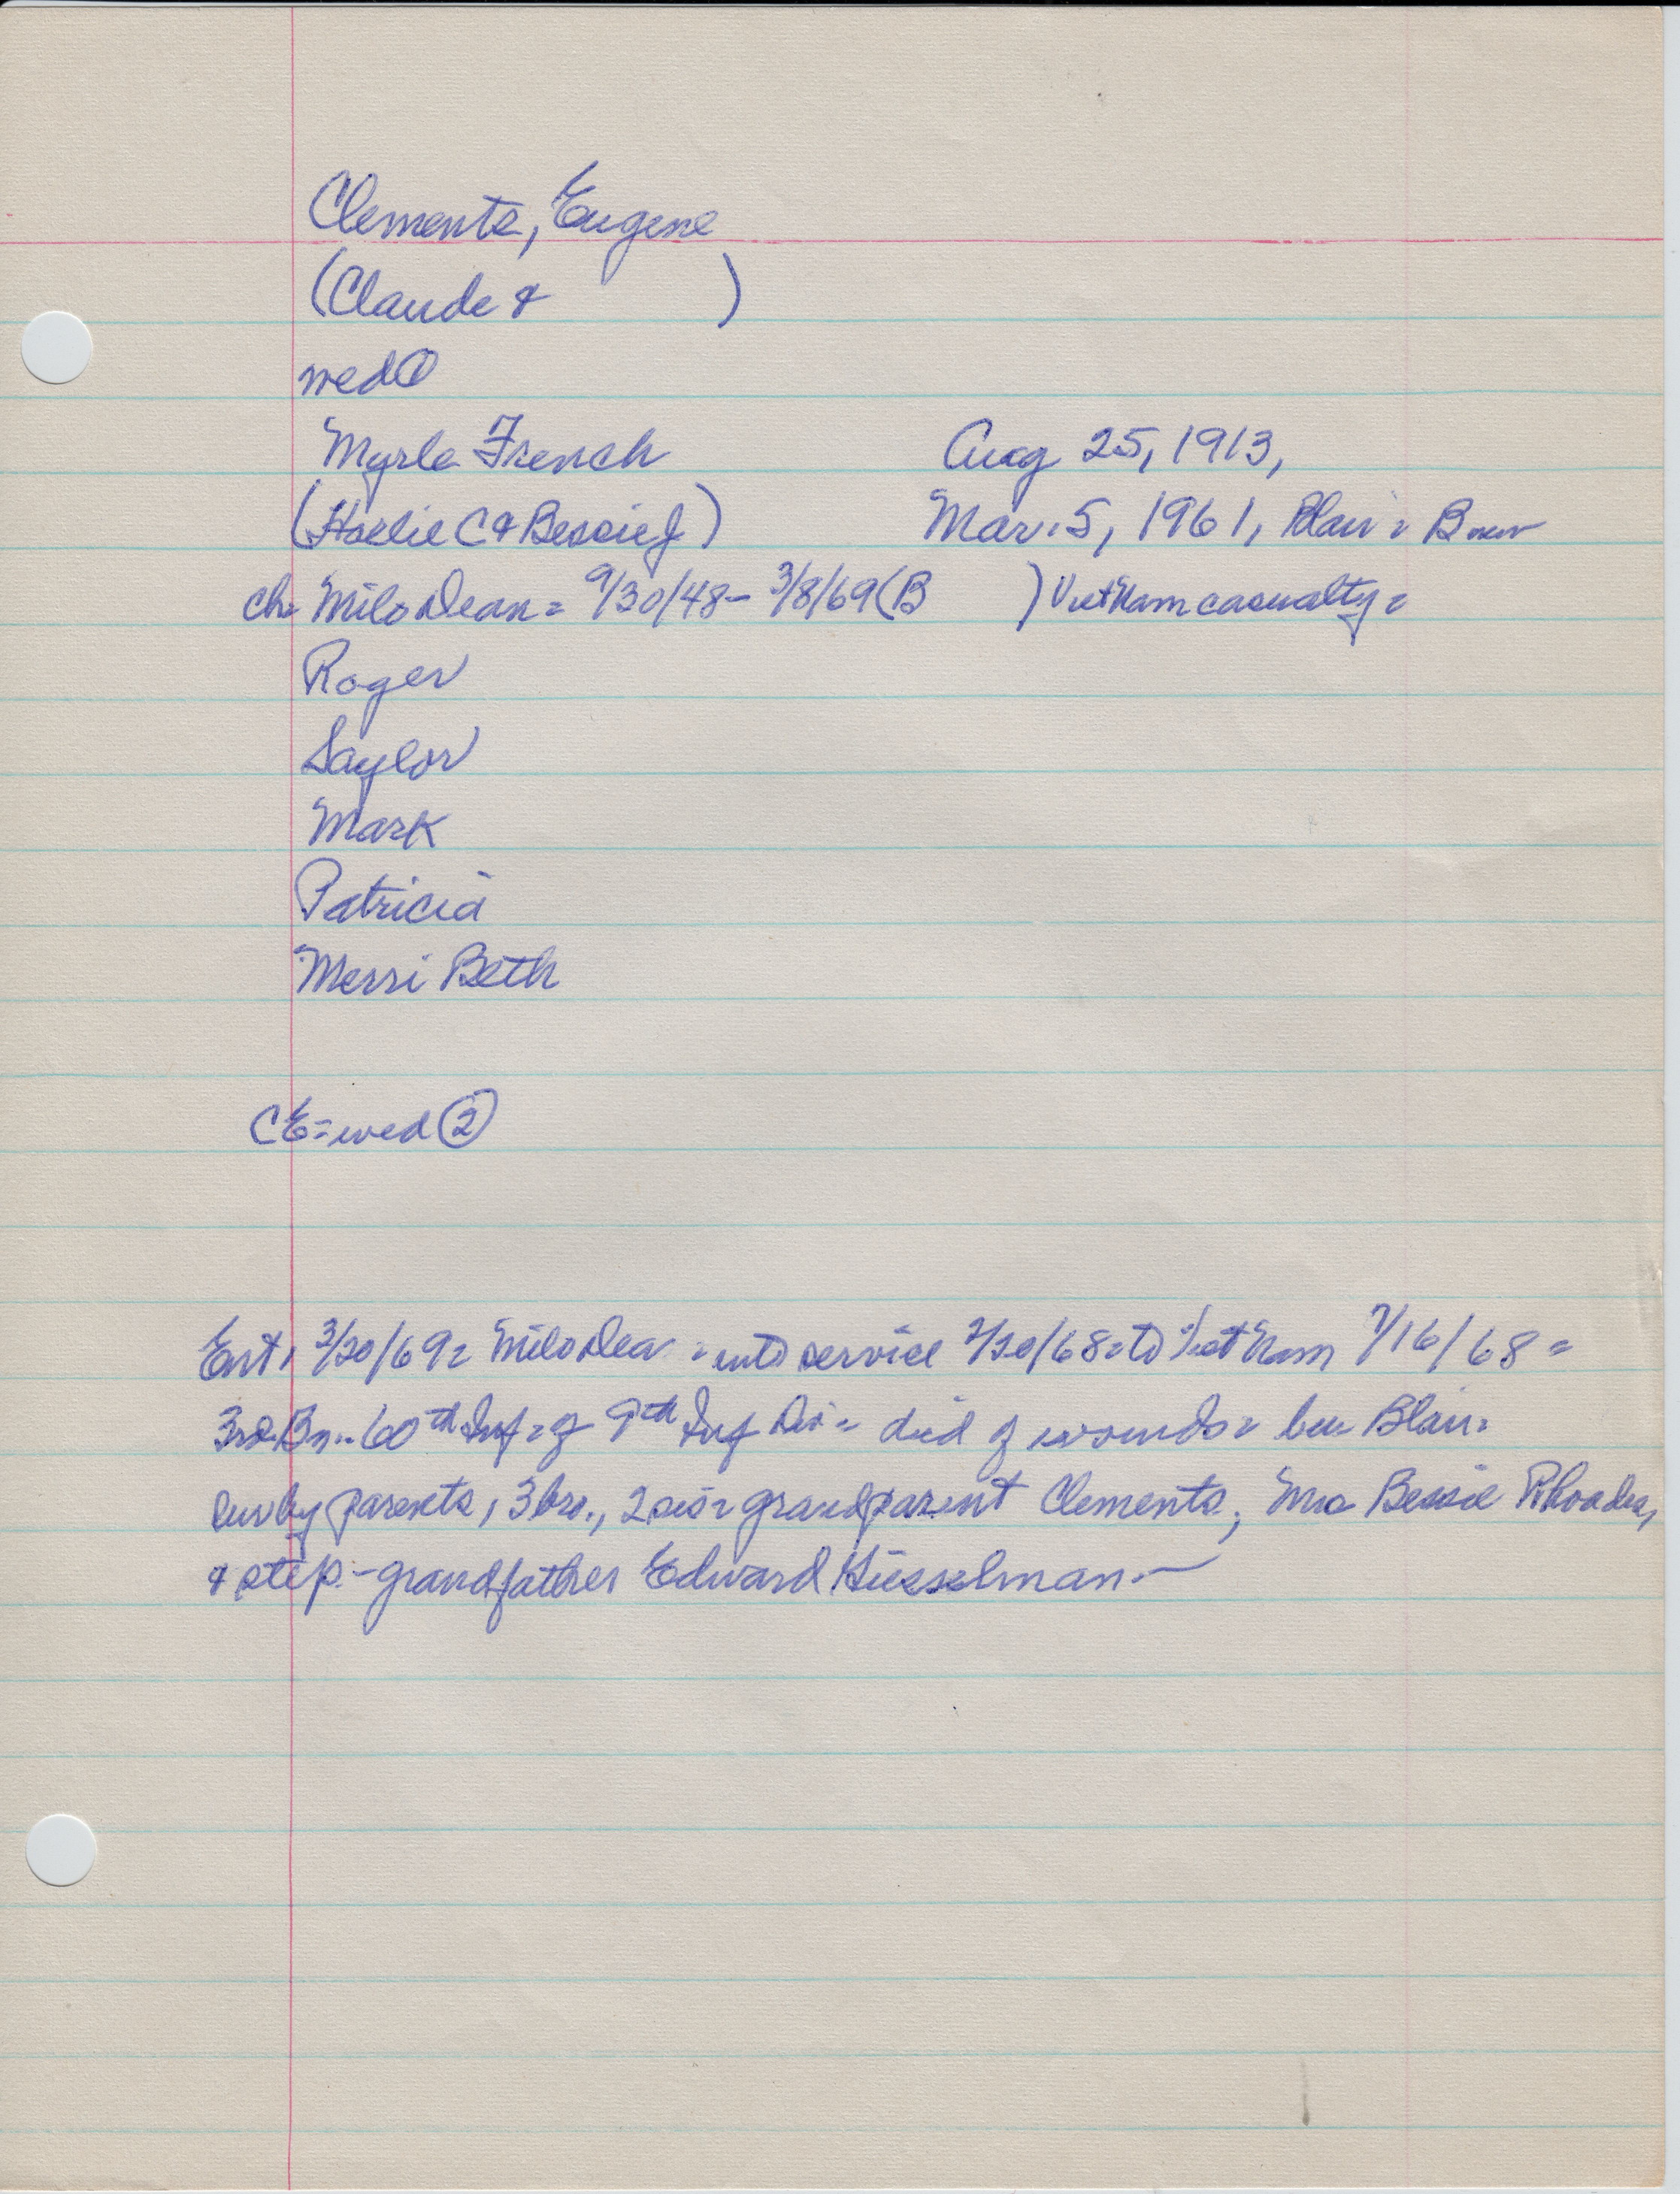 Clements, Eugene
(Claude & )
wed ①
Myrle French Aug 25, 1913,
( C & Bessie J) Mar. 5, 1961, Blair =
ch= Milo Dean = 9/30/48 - 3/8/69 (B ) VietNam casualty =
Roger
Saylor
Mark
Patricia
Merri Beth
CE = wed ②
Ent, 3/20/69 = Milo Dean = into service 2/20/68 = to VietNam 7/16/68 =
3rd Bn.. 60th Inf = of 9th Inf Div = died of wounds = bu Blair.
surv by parents, 3 bro., 2 sis = grandparent Clements, Mrs Bessie Rhoades,
& step-grandfather Edward